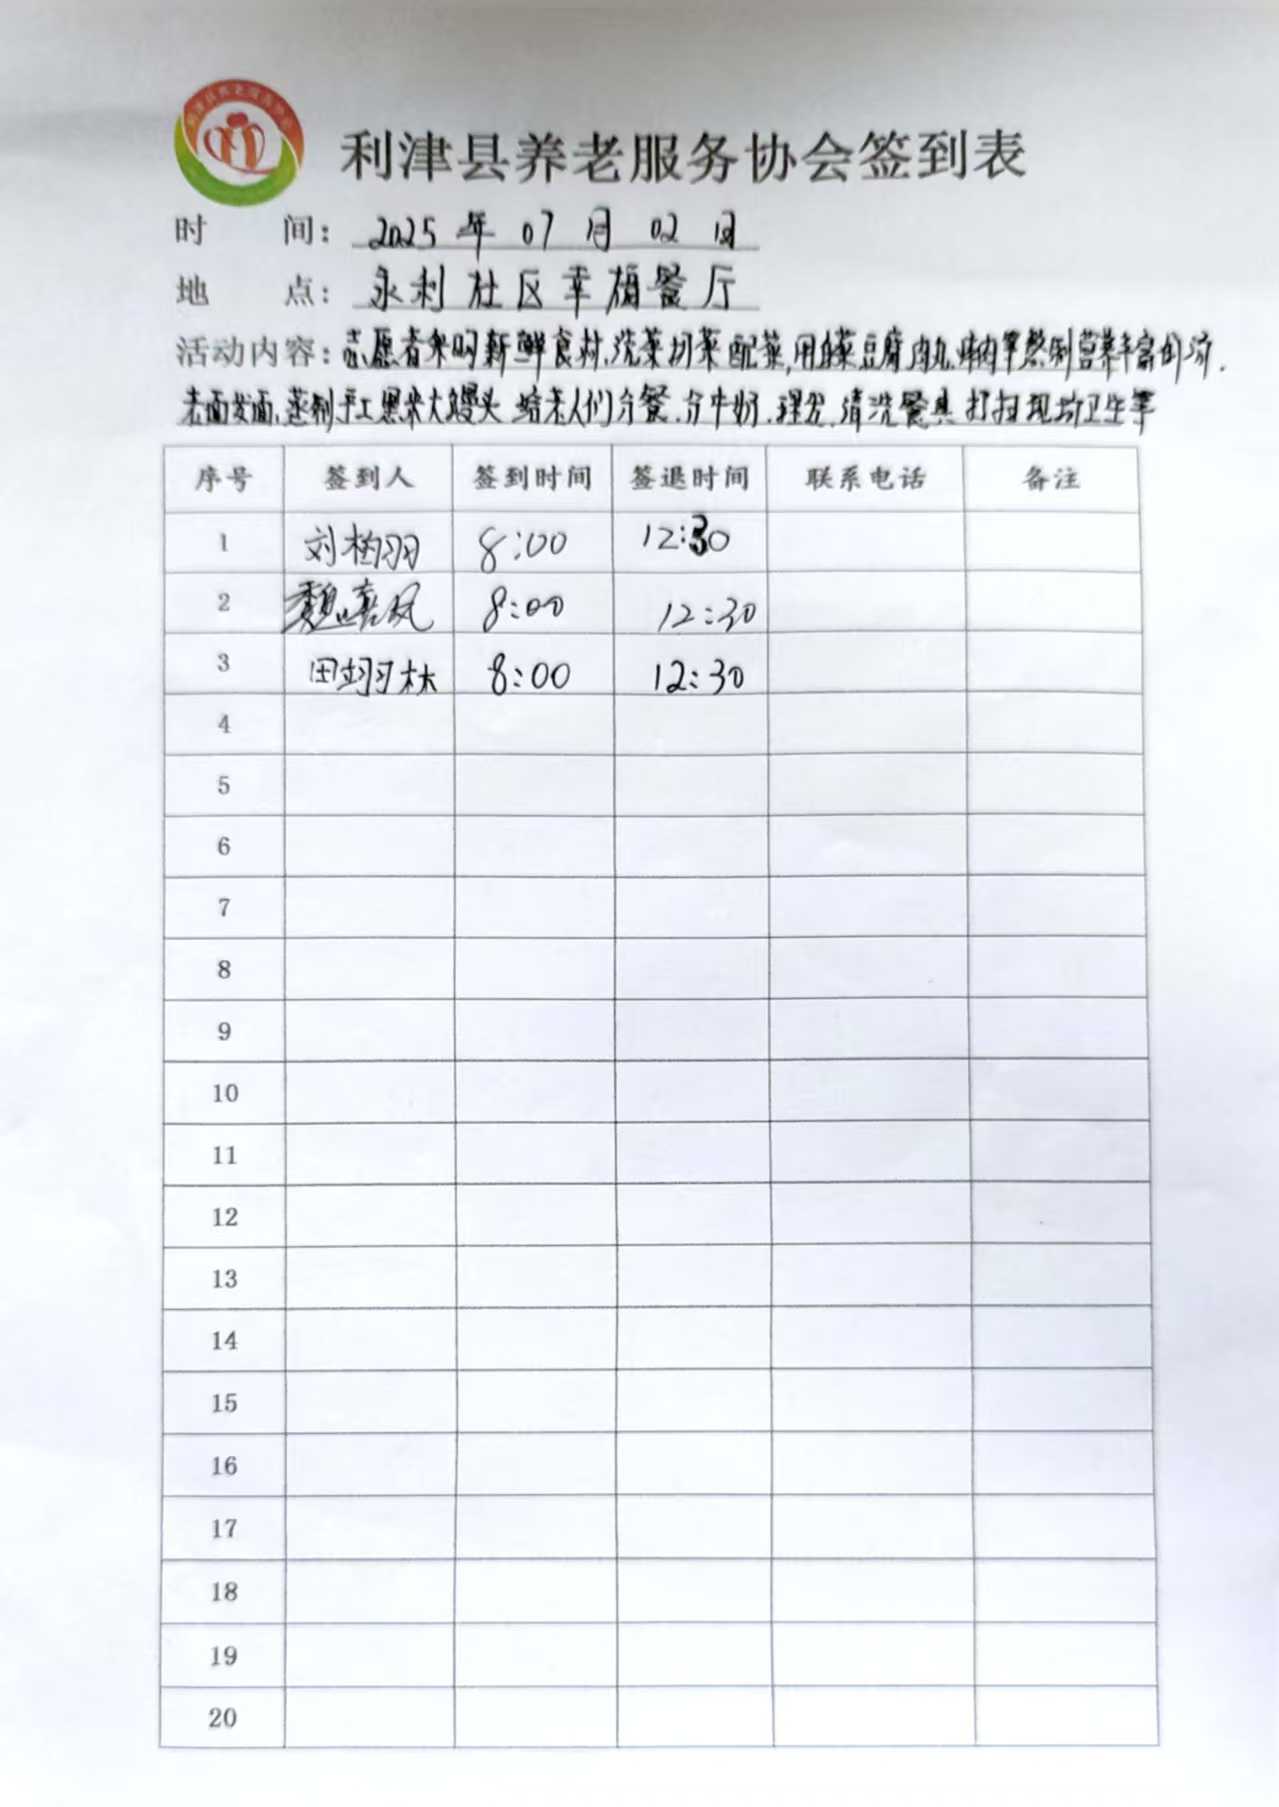 利津县养老服务协会签到表
时 间： 2025 年 07 月 02 日
地 点： 永利社区幸福餐厅
活动内容：志愿者采购新鲜食材，洗菜切菜配菜，用白菜豆腐肉丸、瘦肉等熬制营养丰富的汤，
老面发面，蒸制手工黑米大馒头 给老人们分餐，分牛奶，理发，清洗餐具 打扫现场卫生等
序号 签到人 签到时间 签退时间 联系电话 备注
1 刘柏羽 8:00 12:30
2 魏喜凤 8:00 12:30
3 田翊林 8:00 12:30
4
5
6
7
8
9
10
11
12
13
14
15
16
17
18
19
20